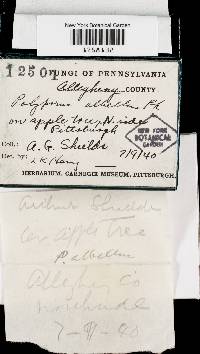 New York Botanical Garden
1250
FUNGI OF PENNSYLVANIA
Allegheny COUNTY
Polyporus albellus Pk
on apple tree, N. side
Pittsburgh
NEW YORK
BOTANICAL
GARDEN
Coll.: A. G. Shields 7/9/40
Det. by: L K Henry
HERBARIUM, CARNEGIE MUSEUM, PITTSBURGH.
Arthur Shields
on apple tree
P. albellus
Allegheny Co
northside
7-9-40